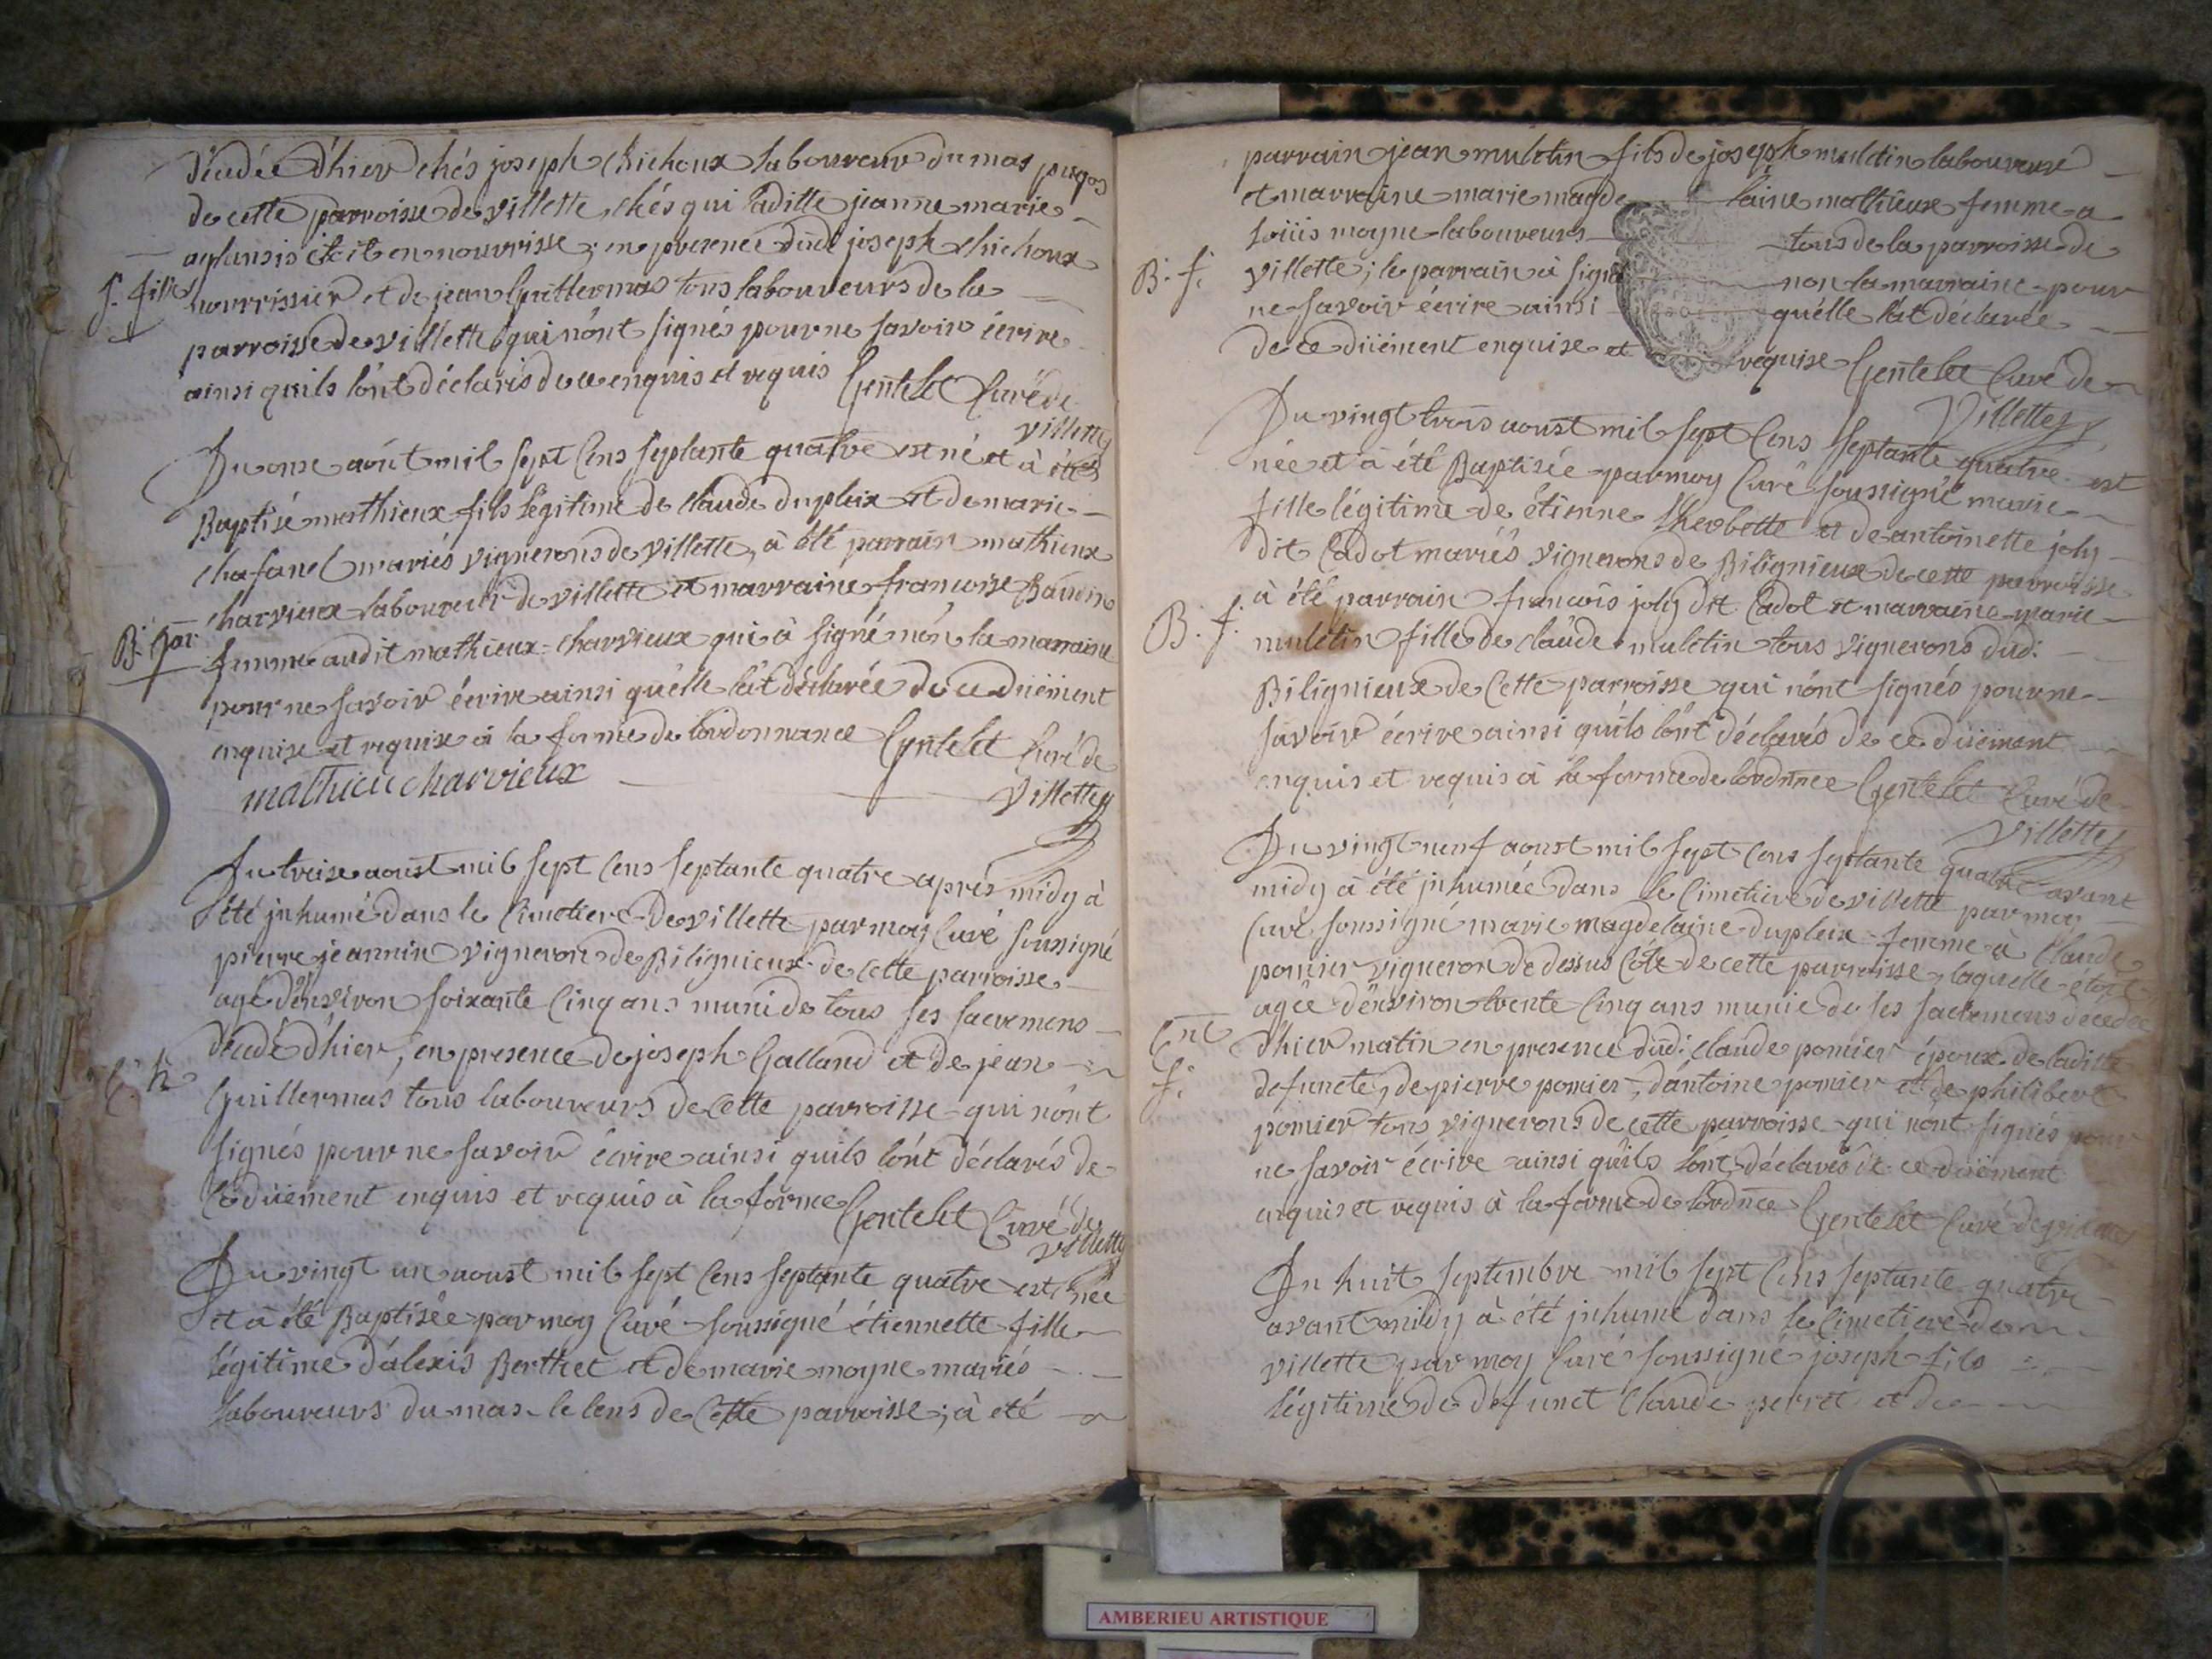 décédée d'hier chés joseph chichoux laboureur du mas pugos
de cette parroisse de villette, chés qui laditte jeanne marie
étoit en nourrisse; en presence dudt joseph chichoux
S. fille
nourrissier et de jean Guillermas tous laboureurs de la
parroisse de villette qui n'ônt signés pour ne savoir écrire
ainsi quils l'ônt déclarés de ce enquis et requis Gentelet Curé de
villette
Du onze aôut mil sept Cens septante quatre est né et à été
Baptisé mathieux fils légitime de Claude dupleix et de marie
chafanel mariés vignerons de villette, à été parrain mathieux
charvieux laboureur de villette et marraine francoise
B. Gar
femme audit mathieux charvieux qui à signé nón la marraine
pour ne savoir écrire ainsi qu'élle l'at déclarée de ce düement
enquise et requise à la forme de l'ordonnance Gentelet Curé de
mathieu charvieux
Villette
Du treise aoust mil sept Cens septante quatre aprés midy à
été jnhumé dans le Cimetiere de villette par moy Curé soussigné
pierre jeannin vigneron de Bilignieux de cette parroisse
agé d'environ soixante Cinq ans muni de tous ses sacremens
décédé d'hier, en presence de joseph Galland et de jean
Guillermas tous laboureurs de Cette parroisse qui n'ônt
signés pour ne savoir écrire ainsi quils l'ônt déclarés de
Ce düement enquis et requis à la forme Gentelet Curé de
villette
Du vingt un aoust mil sept Cens septante quatre est née
et à été Baptisée par moy Curé soussigné étiennette fille
légitime d'alexis Berthet et de marie moyne mariés
laboureurs du mas le lens de Cette parroisse; à eté
parrain jean muletin fils de joseph muletin laboureur
et marraine marie magdelaine mathieux femme a
loüis moyne laboureurs tous de la parroisse de
B. f.
villette; le parrain à signé non la marraine pour
ne savoir écrire ainsi qu'élle l'at déclarée
de ce düement enquise et requise Gentelet Curé de
Villette
Du vingt trois aoust mil sept Cens septante quatre est
née et à été Baptisée par moy Curé soussigné marie
fille légitime de étienne therbette et de antoinette joly
dit Cadot mariés vignerons de Bilignieux de cette parroisse
B. f.
à été parrain francois joly dit Cadot et marraine marie
muletin fille de claude muletin tous vignerons dud:
Bilignieux de Cette parroisse qui n'ônt signés pour ne
savoir écrire ainsi qu'ils l'ônt déclarés de ce düement
enquis et requis à la forme de l'ordnnce Gentelet Curé de
Villette
Du vingt neuf aoust mil sept Cens septante quatre avant
midy à été jnhumée dans le Cimetiere de villette par moy
Curé soussigné marie magdelaine dupleix femme à Claude
pomier vigneron de dessus Côte de cette parroisse, laquelle étoit
agée d'environ trente Cinq ans munie de ses sacremens décédée
f.
d'hier matin en presence dud: claude pomier époux de laditte
defuncte, de pierre pomier, d'antoine pomier et de philibert
pomier tous vignerons de cette parroisse qui n'ônt signés pour
ne savoir écrire ainsi qu'ils l'ônt déclarés de ce düement
enquis et requis à la forme de l'ordnce Gentelet Curé de villette
Du huit septembre mil sept Cens septante quatre
avant midy à été jnhumé dans le Cimetiere de
villette par moy Curé soussigné joseph fils
légitime de defunct Claude perret et de
AMBERIEU ARTISTIQUE